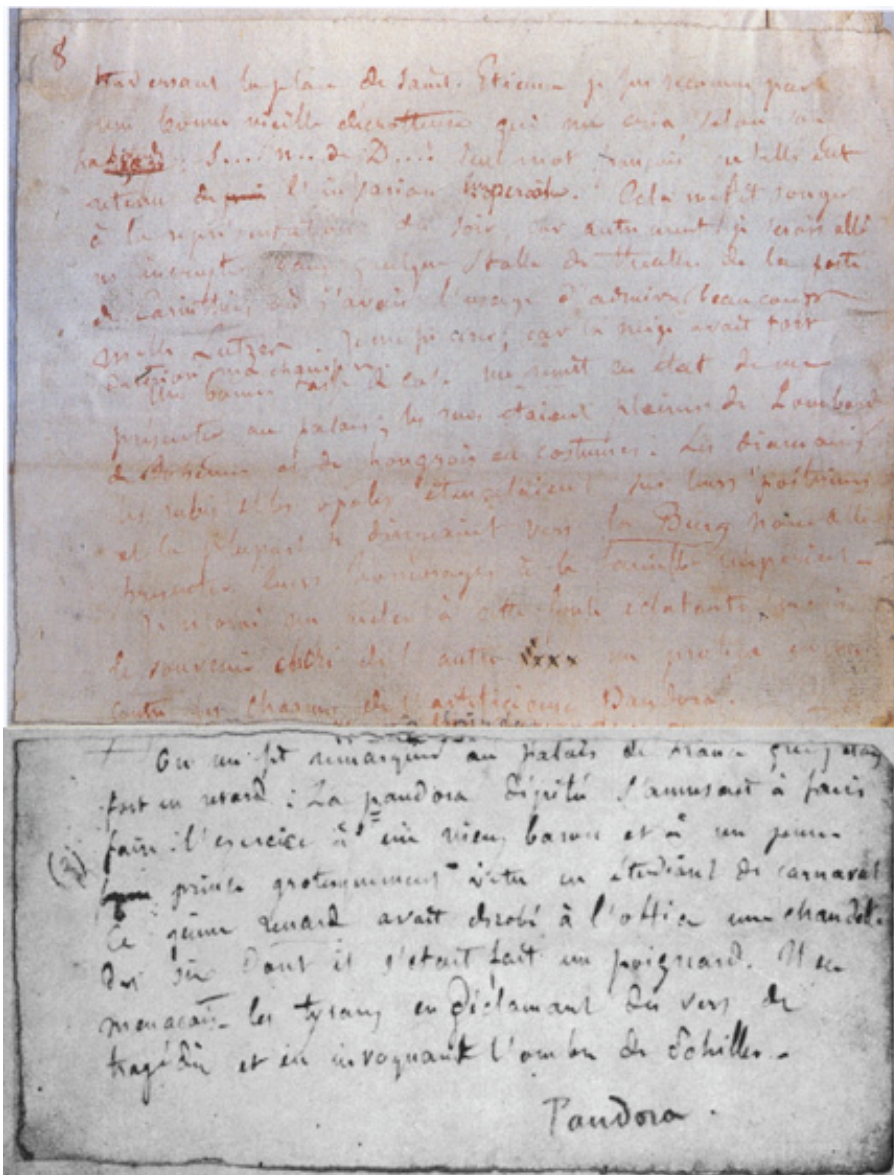 8
traversant la place de Saint-Etienne je fus reconnu par
une bonne vieille décrotteuse qui me cria, selon son
S... n.. de D...! seul mot français qu'elle eut
retenu de l'invasion impériale. Cela me fit songer
à la représentation du soir, car autrement je serais allé
m'incruster dans quelque stalle du théâtre de la porte
de Carinthie où j'avais l'usage d'admirer beaucoup
Melle Lutzer. Je me fis cirer, car la neige avait fort
détérioré ma chaussure.
Une bonne tasse de café me remit en état de me
présenter au palais; les rues étaient pleines de Lombards
de Bohêmes et de hongrois en costumes. Les diamans
les rubis et les opales étincelaient sur leurs poitrines
et la plupart se dirigeaient vers la Burg pour aller
présenter leurs hommages à la famille impériale.
Je n'osai me mêler à cette foule éclatante, mais
le souvenir chéri de l'autre xxx me protégea encore
contre les charmes de l'artificieuse Pandora.
On me fit remarquer au palais de France que j'étais
fort en retard : La pandora dépitée s'amusait à faire
faire l'exercice à un vieux baron et à un jeune
(3)
prince grotesquement vêtu en étudiant de carnaval
Ce jeune renard avait dérobé à l'office une chandelle
des six dont il s'était fait un poignard. Il en
menaçait les tyrans en déclamant des vers de
tragédie et en invoquant l'ombre de Schiller.
Pandora.